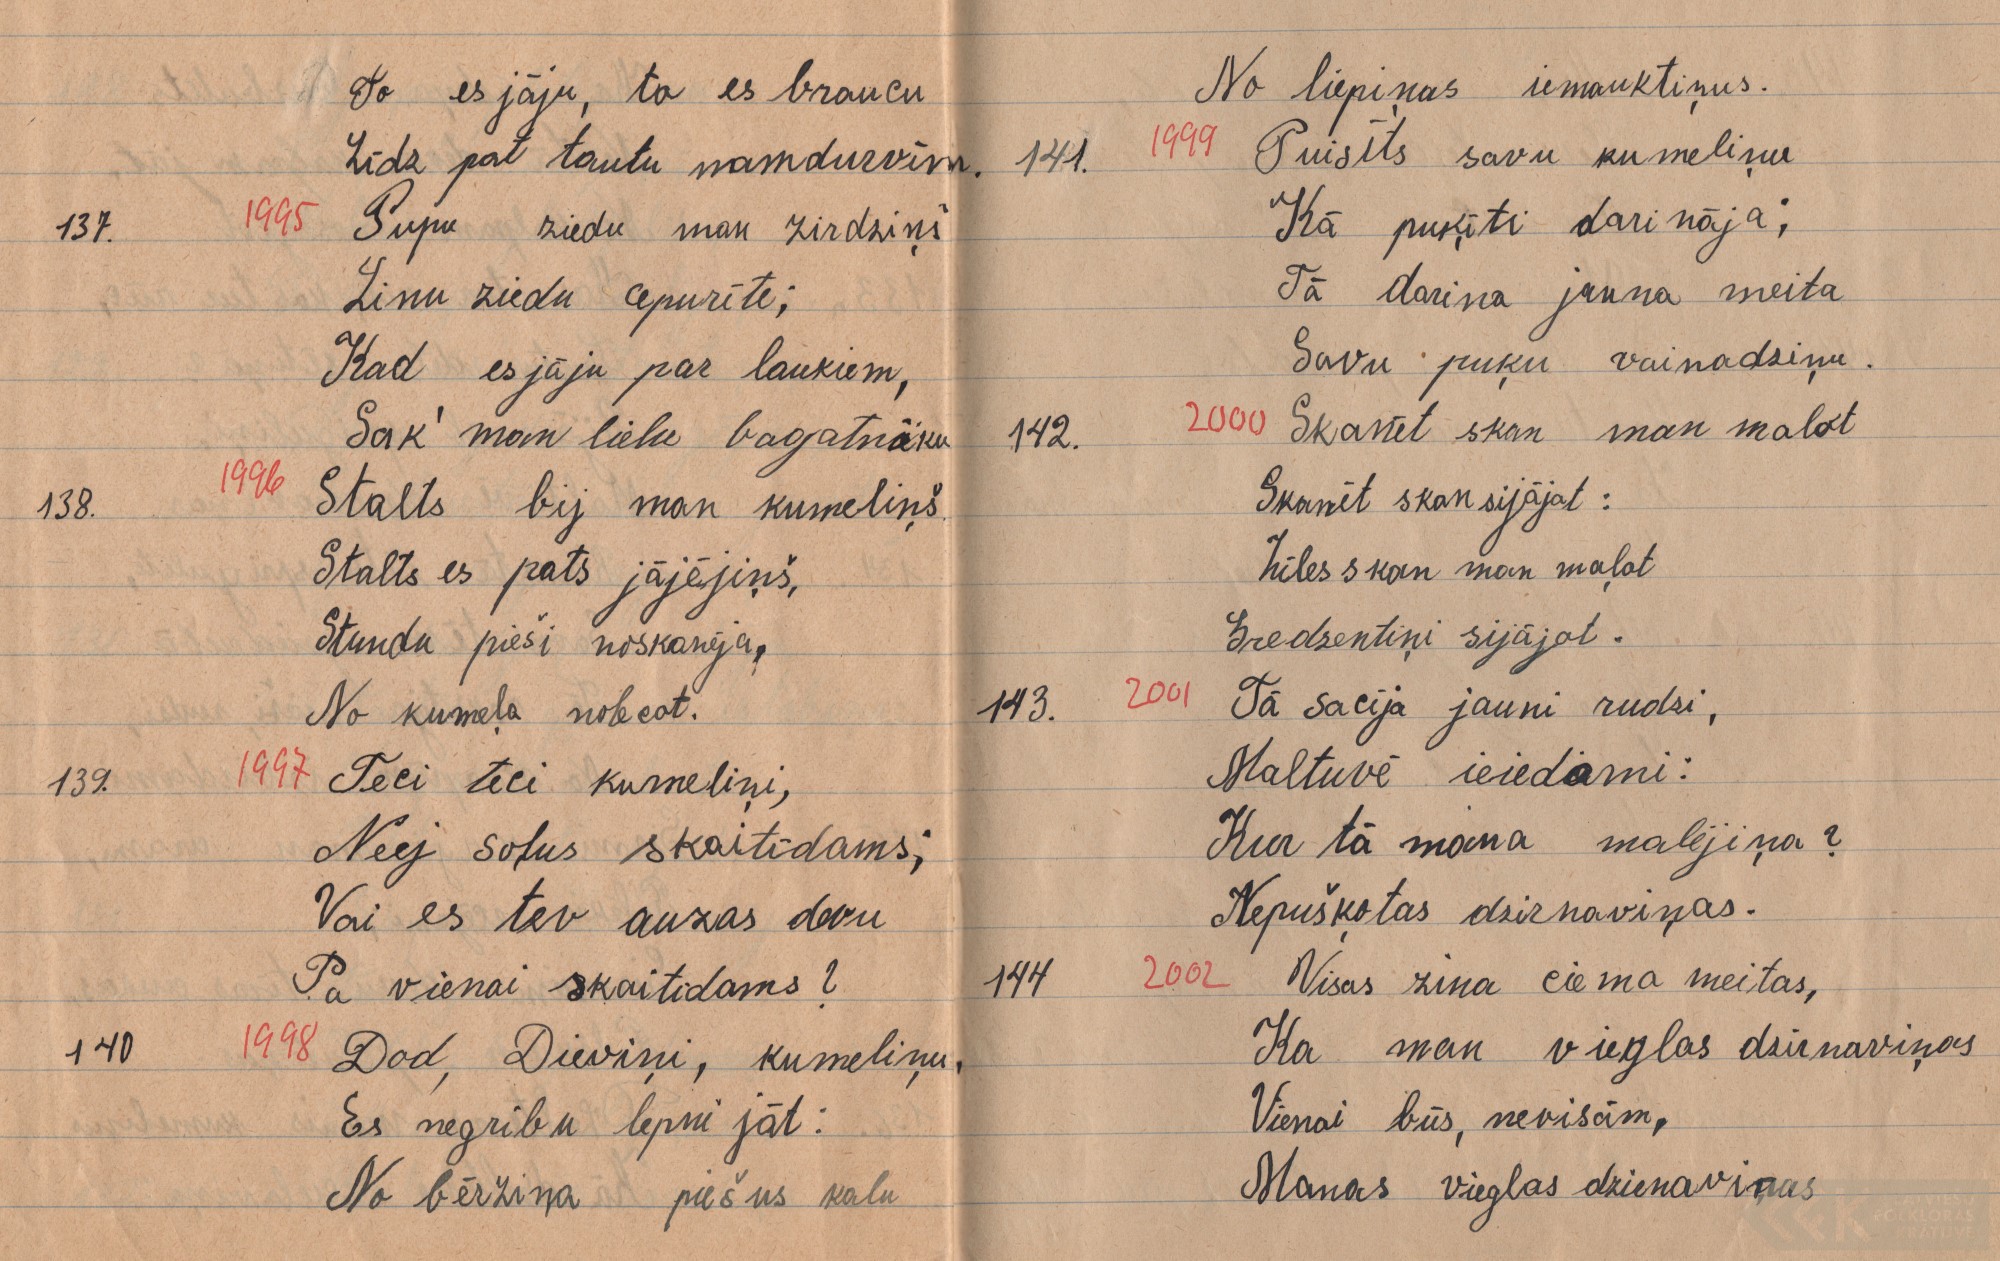 To es jāju, to es braucu
Līdz pat tautu namdurvīm.
137. 1995 Pupu ziedu man zirdziņš
Linu ziedu cepurīte;
Kad es jāju par laukiem,
Sak' man lielu bagatnāku
138. 1996 Stalts bij man kumeliņš
Stalts es pats jājējiņš,
Stundu pieši noskanēja,
No kumeļa nolecot.
139. 1997 Teci teci kumeliņi,
Neej soļus skaitīdams;
Vai es tev auzas devu
Pa vienai skaitīdams?
140 1998 Dod, Dieviņi, kumeliņu,
Es negribu lepni jāt:
No bērziņa piešus kalu
No liepiņas iemauktiņus.
141. 1999 Puisīts savu kumeliņu
Kā puķīti darināja;
Tā darina jauna meita
Savu puķu vainadziņu.
142. 2000 Skanēt skan man malot
Skanēt skan sijājot:
Zīles skan man maļot
Gredzentiņi sijājot.
143. 2001 Tā sacīja jauni rudzi,
Maltuvē ieiedami:
Kur tā mana malējiņa?
Nepušķotas dzirnaviņas.
144 2002 Visas zina ciema meitas,
Ka man vieglas dzirnaviņas
Vienai būs, nevisām,
Manas vieglas dzirnaviņas